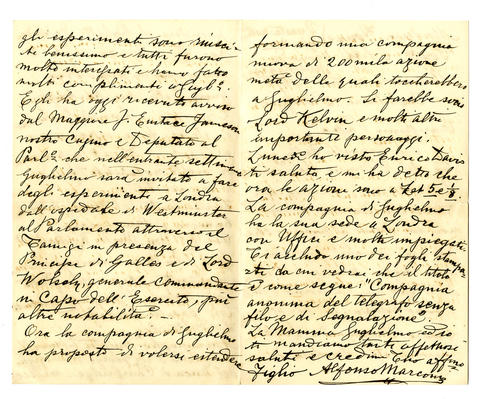 gli esperimenti sono riusci-
ti benissimo e tutti furono
molto interessati e hanno fatto
molti complimenti a Gugl.º
Egli ha oggi ricevuto avviso
dal Maggiore J. Eustace Jameson
nostro Cugino e Deputato al
Parl.º che nell'entrante settimana
Guglielmo sarà invitato a fare
degli esperimenti a Londra
dall'ospedale di Westminster
al Parlamento attraverso il
Tamigi in presenza del
Principe di Galles e di Lord
Wolsely, generale Commandante
in Capo dell'Esercito, più
altre notabilità. —
Ora la compagnia di Guglielmo
ha proposto di volersi estendere
formando una compagnia
nuova di 200 mila azione
metà della quali toccherebbero
a Guglielmo. Si farebbe socio
Lord Kelvin e molti altri
importante personaggi.
Lunedì ho visto Enrico Davis
ti saluta, e mi ha detto che
ora le azione sono a £st 5 e 1/8.
La compagnia di Guglielmo
ha la sua sede a Londra
con Uffici e molte impiegati.
Ci accludo uno dei fogli stampa-
ti da cui vedrai che il titolo
è come segue: "Compagnia
anonima del telegrafo senza
filo e di Segnalazione".
La Mamma Guglielmo ed io
ti mandiamo tanti affettuosi
saluti e credimi Tuo affmo
Figlio Alfonso Marconi